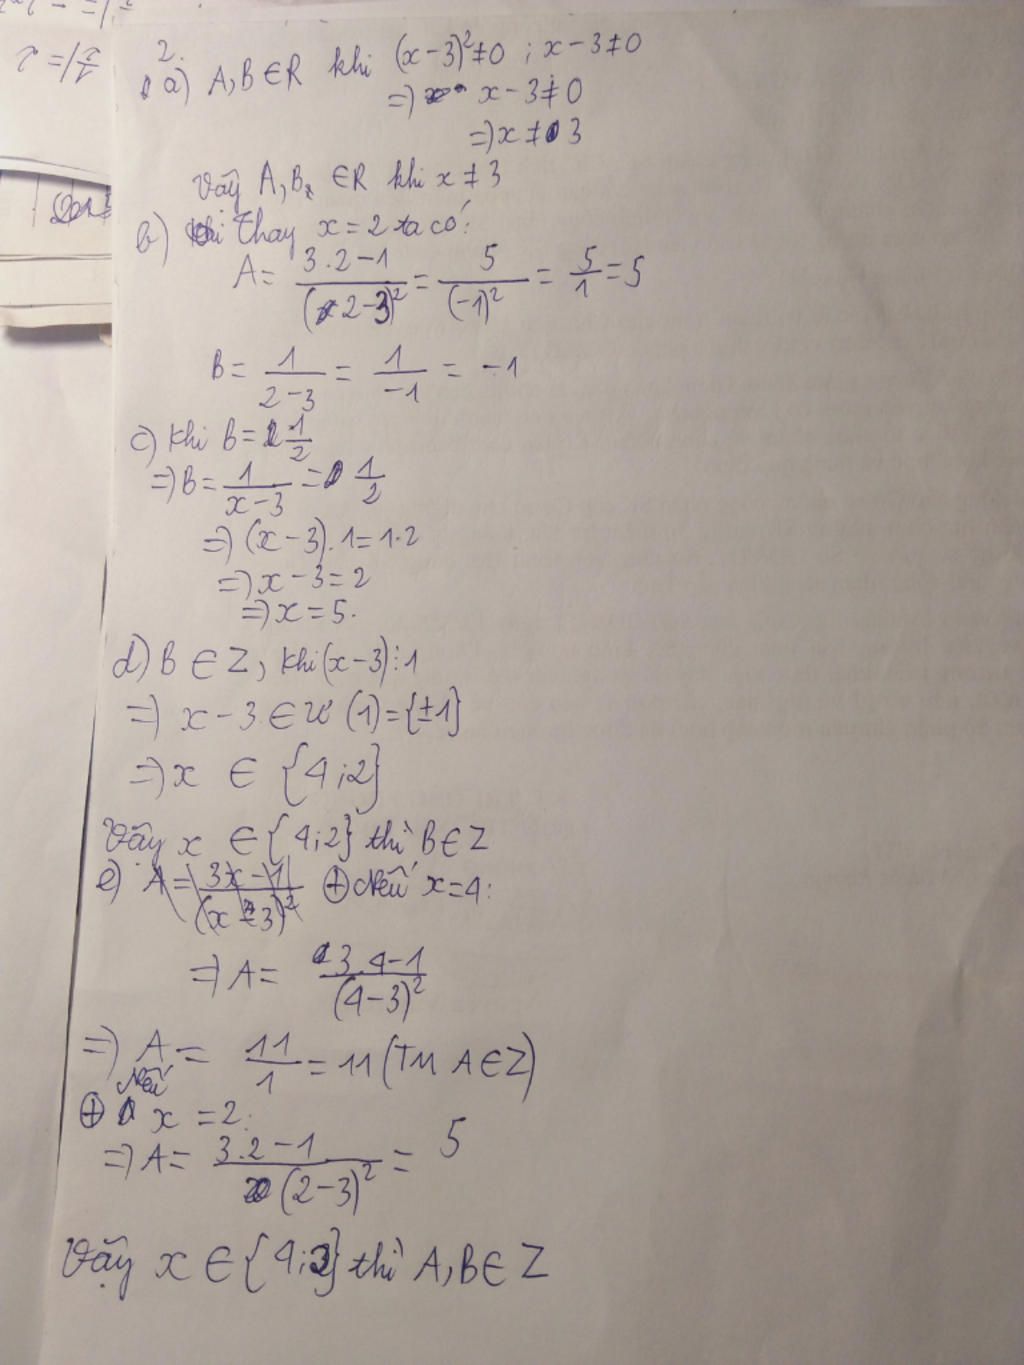 2.
a) A, B ∈ R khi (x-3)² ≠ 0 ; x-3 ≠ 0
=> x-3 ≠ 0
=> x ≠ 3
Vậy A, B ∈ R khi x ≠ 3
b) Thay x = 2 ta có:
A = \frac{3.2-1}{(2-3)²} = \frac{5}{(-1)²} = \frac{5}{1} = 5
B = \frac{1}{2-3} = \frac{1}{-1} = -1
c) Khi B = \frac{1}{2}
=> B = \frac{1}{x-3} = \frac{1}{2}
=> (x-3).1 = 1.2
=> x-3 = 2
=> x = 5.
d) B ∈ Z, khi (x-3) ⋮ 1
=> x-3 ∈ Ư (1) = {±1}
=> x ∈ {4;2}
Vậy x ∈ {4;2} thì B ∈ Z
e) A = \frac{3x-1}{(x-3)²} ⊕ Nếu x = 4:
=> A = \frac{3.4-1}{(4-3)²}
=> A = \frac{11}{1} = 11 (TM A ∈ Z)
⊕ Nếu x = 2:
=> A = \frac{3.2-1}{(2-3)²} = 5
Vậy x ∈ {4;2} thì A, B ∈ Z